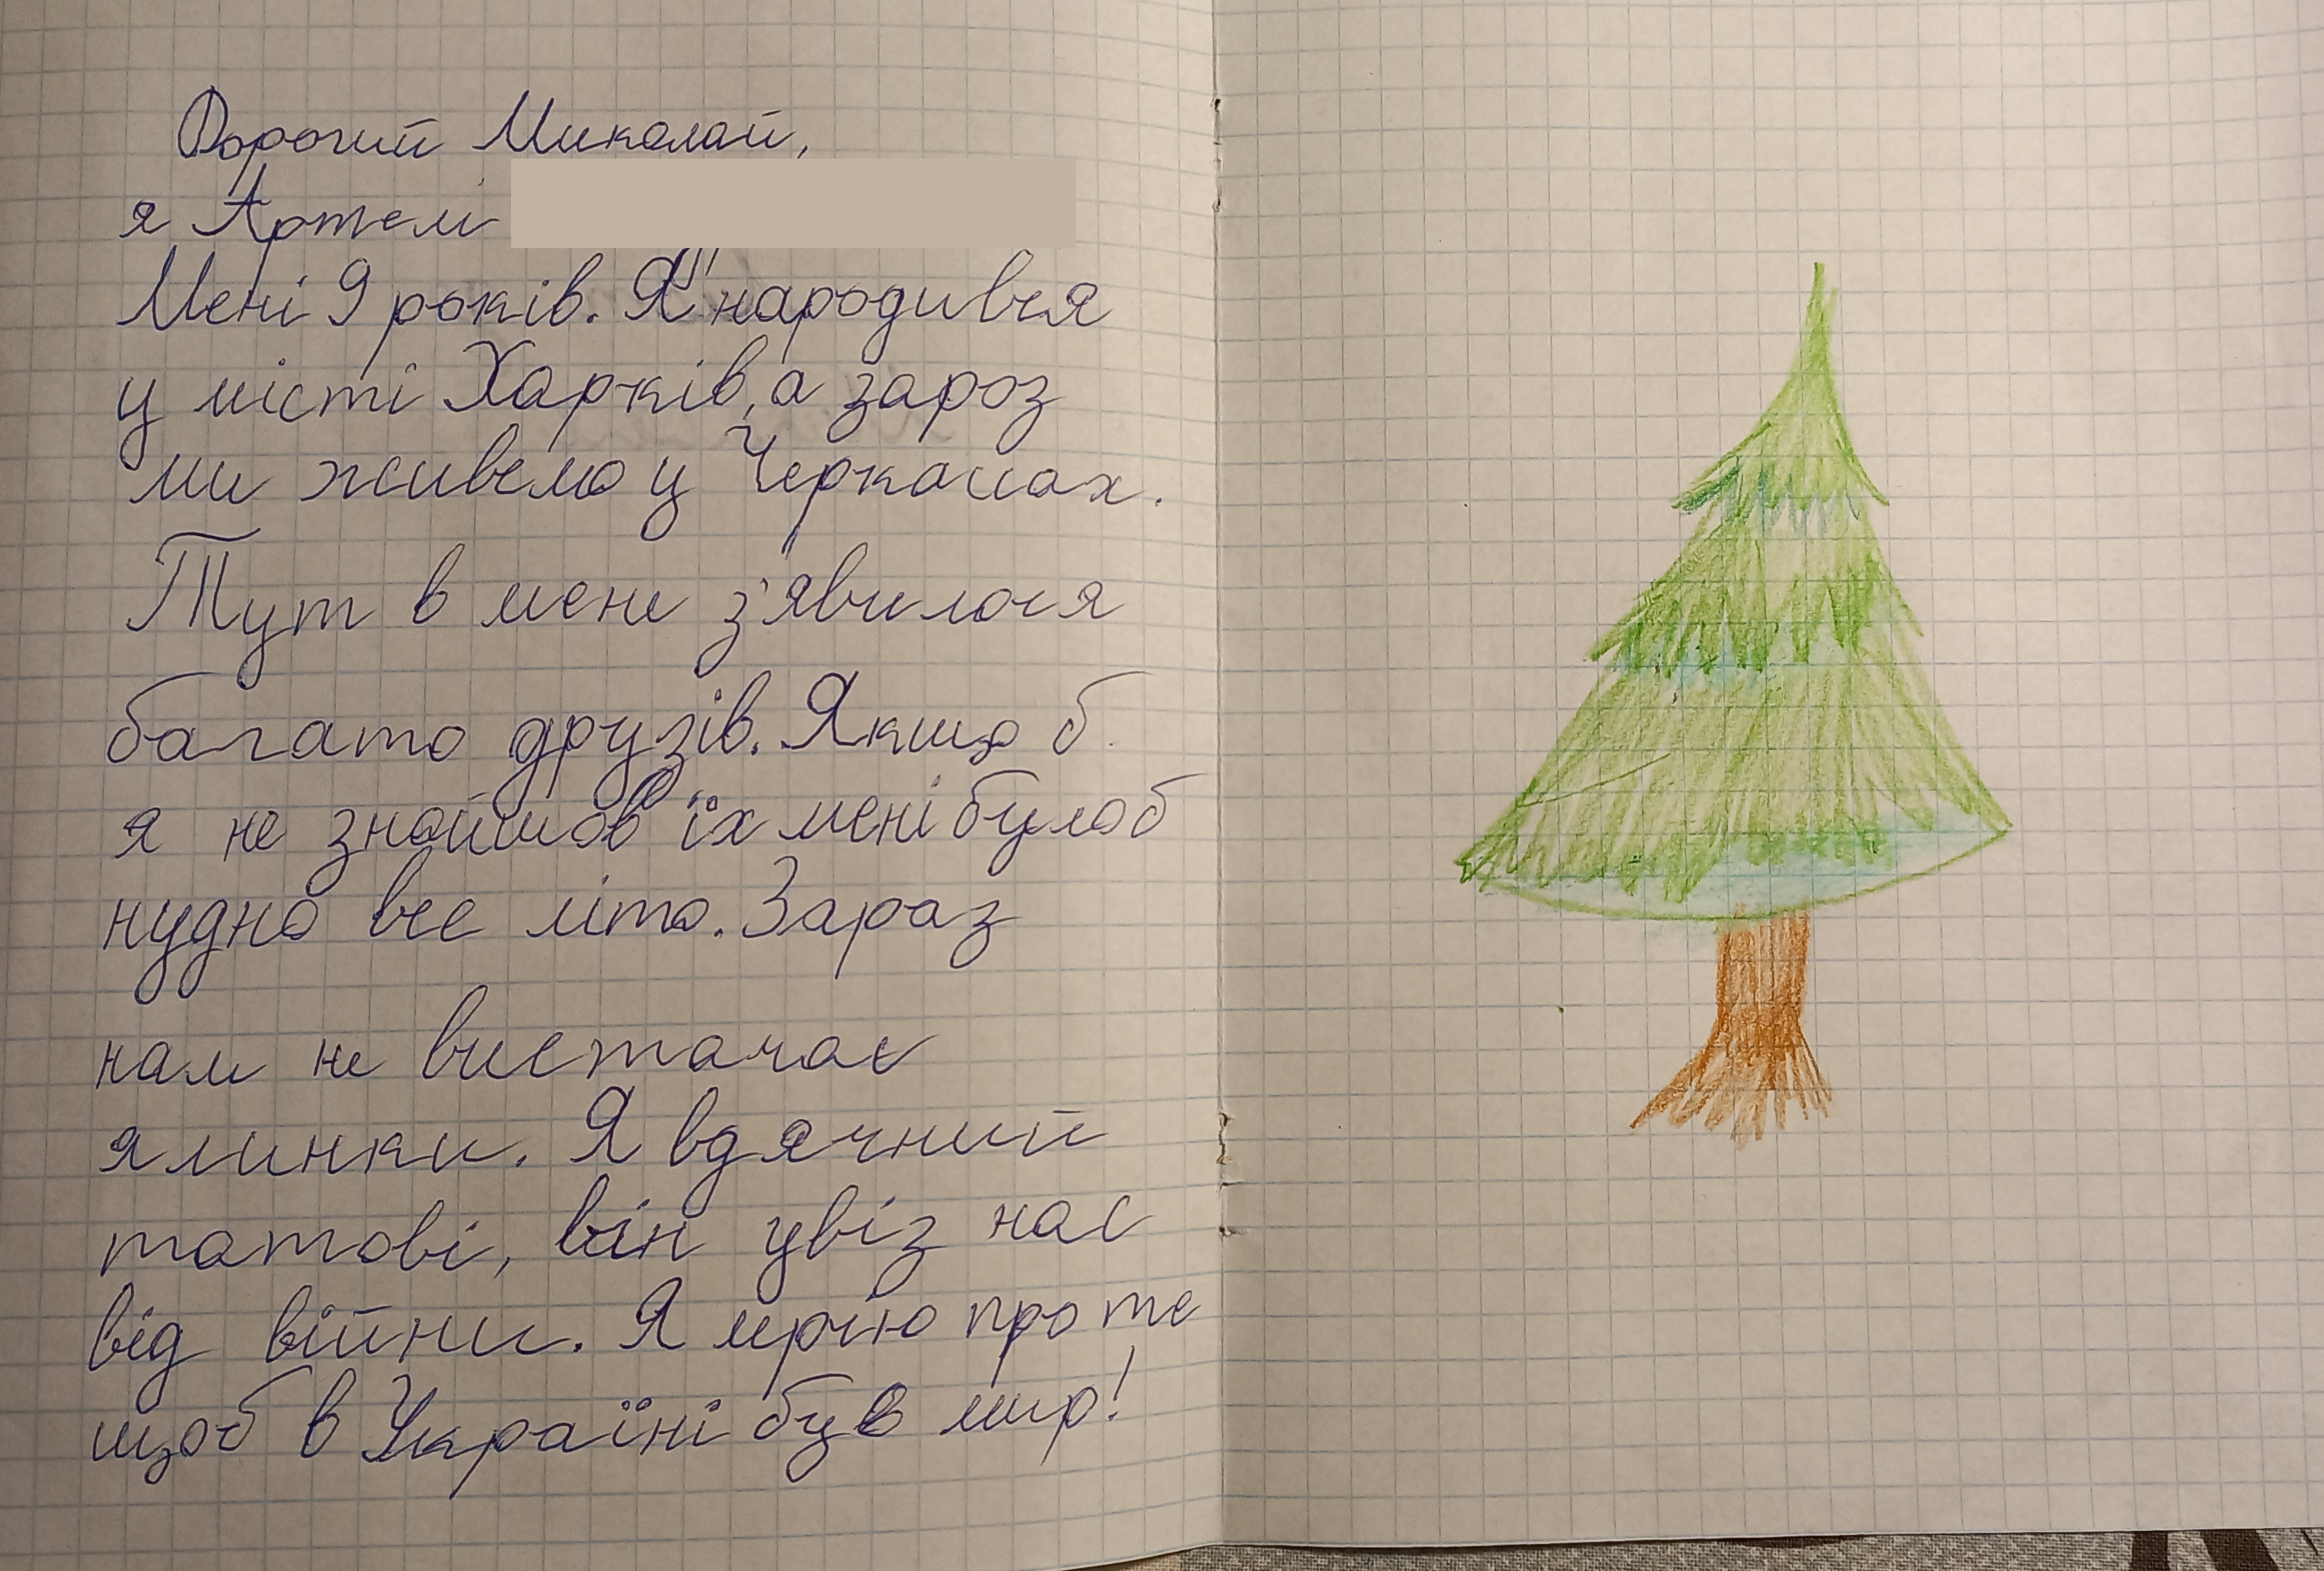 Дорогий Миколай,
я Артем
Мені 9 років. Я народився
у місті Харків, а зароз
ми живемо у Черкасах.
Тут в мене з'явилося
багато друзів. Якщо б
я не знайшов їх мені булоб
нудно все літо. Зараз
нам не вистачає
ялинки. Я вдячний
татові, він увіз нас
від війни. Я мрію про те
щоб в Україні був мир!